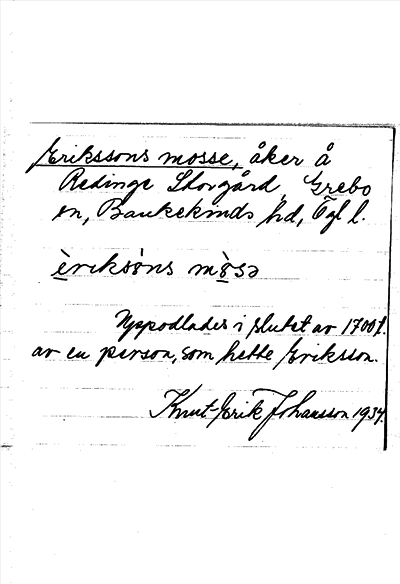 Erikssons mosse, åker å
Redinge Storgård, Grebo
sn, Bankekinds hd, Ögl l.
èriksòns mòsə
Uppodlades i slutet av 1700 t.
av en person, som hette Eriksson.
Knut-Erik Johansson 1934.